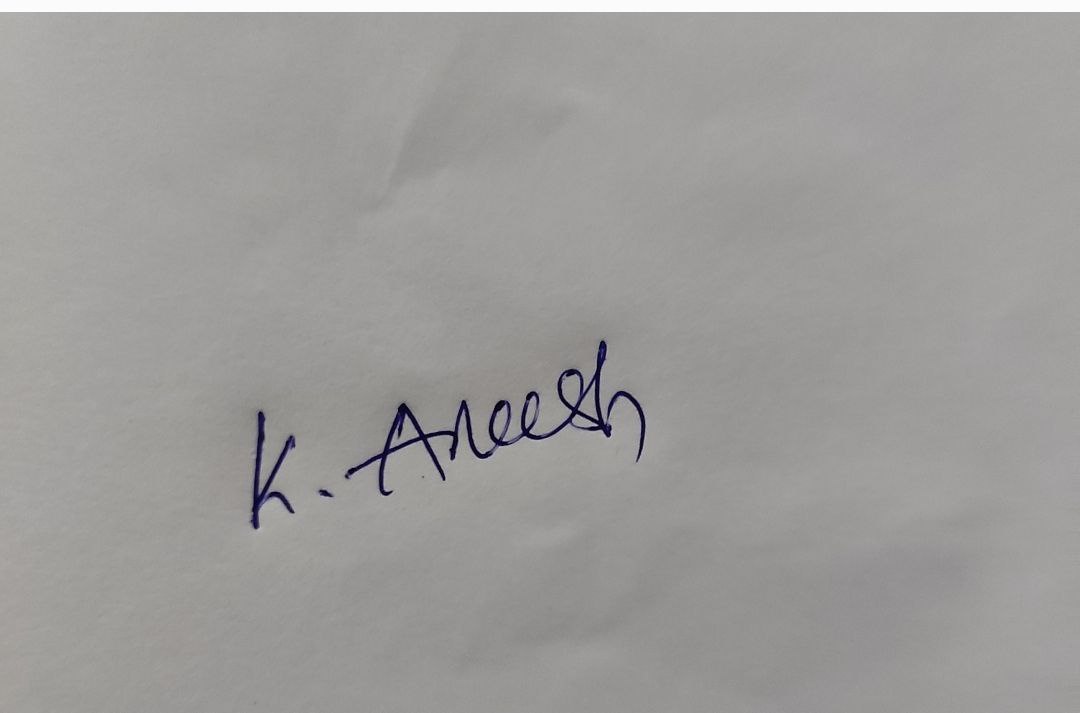 K. Aneesh